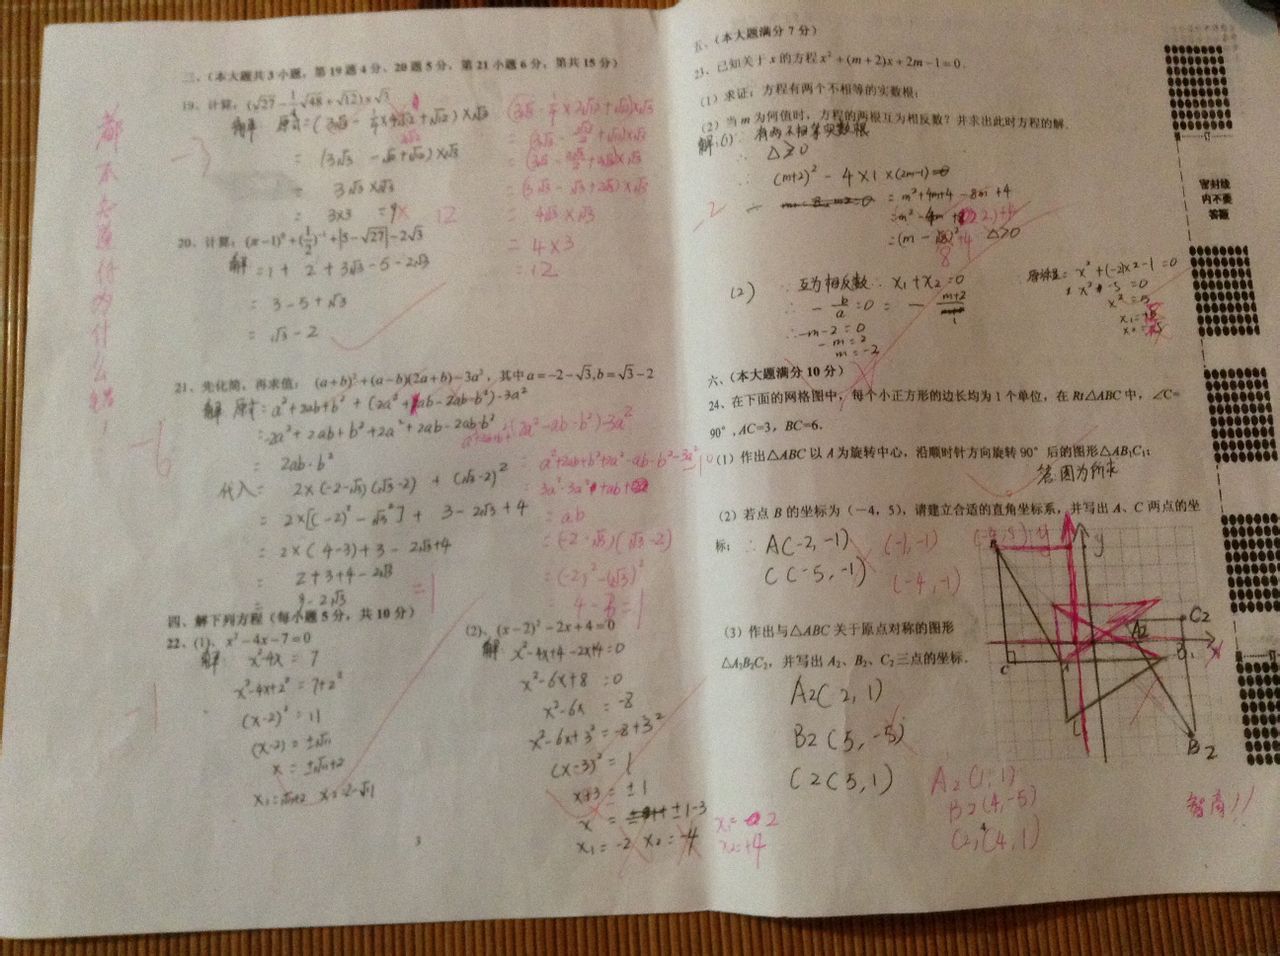 三、(本大题共3小题，第19题4分、20题5分、第21小题6分，第共15分)
19、计算：(√27 − 1/4√48 + √12)×√3
解 原式=(3√3 - 1/4×4√3 + √12)×√3
= (3√3 - √3 + √12)×√3
= 3√3×√3
= 3×3 =9 × 12
= 4√3×√3
= 4×3
= 12
20、计算：(π−1)⁰+(1/2)⁻¹+|5−√27|−2√3
解 =1+ 2 + 3√3 -5 -2√3
= 3-5+√3
= √3-2
21、先化简，再求值： (a+b)²+(a−b)(2a+b)−3a²，其中a=−2−√3,b=√3−2
解 原式=a²+2ab+b²+(2a²+ab-2ab-b²)-3a²
=2a²+2ab+b²+2a²+2ab-2ab-b²
= 2ab-b²
代入= 2×(-2-√3)(√3-2) + (√3-2)²
= 2×[(-2)²-√3²] + 3-2√3+4
= 2×(4-3)+3-2√3+4
= 2+3+4-2√3
= 9-2√3
= a²+2ab+b²+2a²-ab-b²-3a²
= ab
= (-2-√3)(√3-2)
= (-2)²-(√3)²
= 4-3=1
-6
=1
四、解下列方程（每小题5分，共10分）
22、(1)、x²−4x−7=0
解 x²-4x = 7
x²-4x+2² = 7+2²
(x-2)² = 11
(x-2) = ±√11
x = ±√11+2
-1
(2)、(x−2)²−2x+4=0
解 x²-4x+4-2x+4=0
x²-6x+8 =0
x²-6x = -8
x²-6x+3² = -8+3²
(x-3)² = 1
x+3 = ±1
x = ±1-3
x₁= -2 x₂= -4
x₁= 2
x₂=+4
3
五、(本大题满分7分)
23、已知关于x的方程x²+(m+2)x+2m−1=0.
(1) 求证：方程有两个不相等的实数根；
(2) 当m为何值时，方程的两根互为相反数？并求出此时方程的解.
解:(1)∵有两不相等实数根
∴ △≥0
∴ (m+2)²-4×1×(2m-1)
= m²+4m+4-8m+4
△>0
-2
(2) ∵互为相反数∴x₁+x₂=0
∴ -b/a=0= -(m+2)/1
∴-m-2=0
-m=2
m=-2
x²+(-2)×2-1=0
x²-5=0
x²=5
六、(本大题满分10分)
24、在下面的网格图中，每个小正方形的边长均为1个单位，在Rt△ABC中，∠C=
90°，AC=3，BC=6.
(1) 作出△ABC以A为旋转中心，沿顺时针方向旋转90°后的图形△AB₁C₁;
答:图为所求
(2) 若点B的坐标为(−4，5)，请建立合适的直角坐标系，并写出A、C两点的坐
标; ∴A(-2,-1) (-1,-1)
C(-5,-1) (-4,-1)
(3) 作出与△ABC关于原点对称的图形
△A₂B₂C₂，并写出A₂、B₂、C₂三点的坐标.
A2(2,1)
B2(5,-5)
C2(5,1)
A2(1,1)
B2(4,-5)
C2(4,1)
B
C
A
A2
C2
B2
y
x
4
智商!!
密封线
内不要
答题